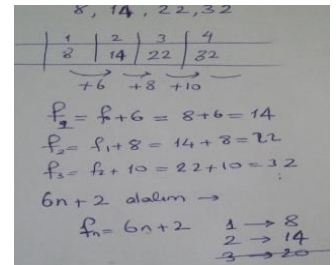 8, 14, 22, 32
1 | 2 | 3 | 4
8 | 14 | 22 | 32
+6 +8 +10
f₂ = f₁ + 6 = 8 + 6 = 14
f₂ = f₁ + 8 = 14 + 8 = 22
f₃ = f₂ + 10 = 22 + 10 = 32
6n + 2 alalım →
fₙ = 6n + 2
1 → 8
2 → 14
3 → 20